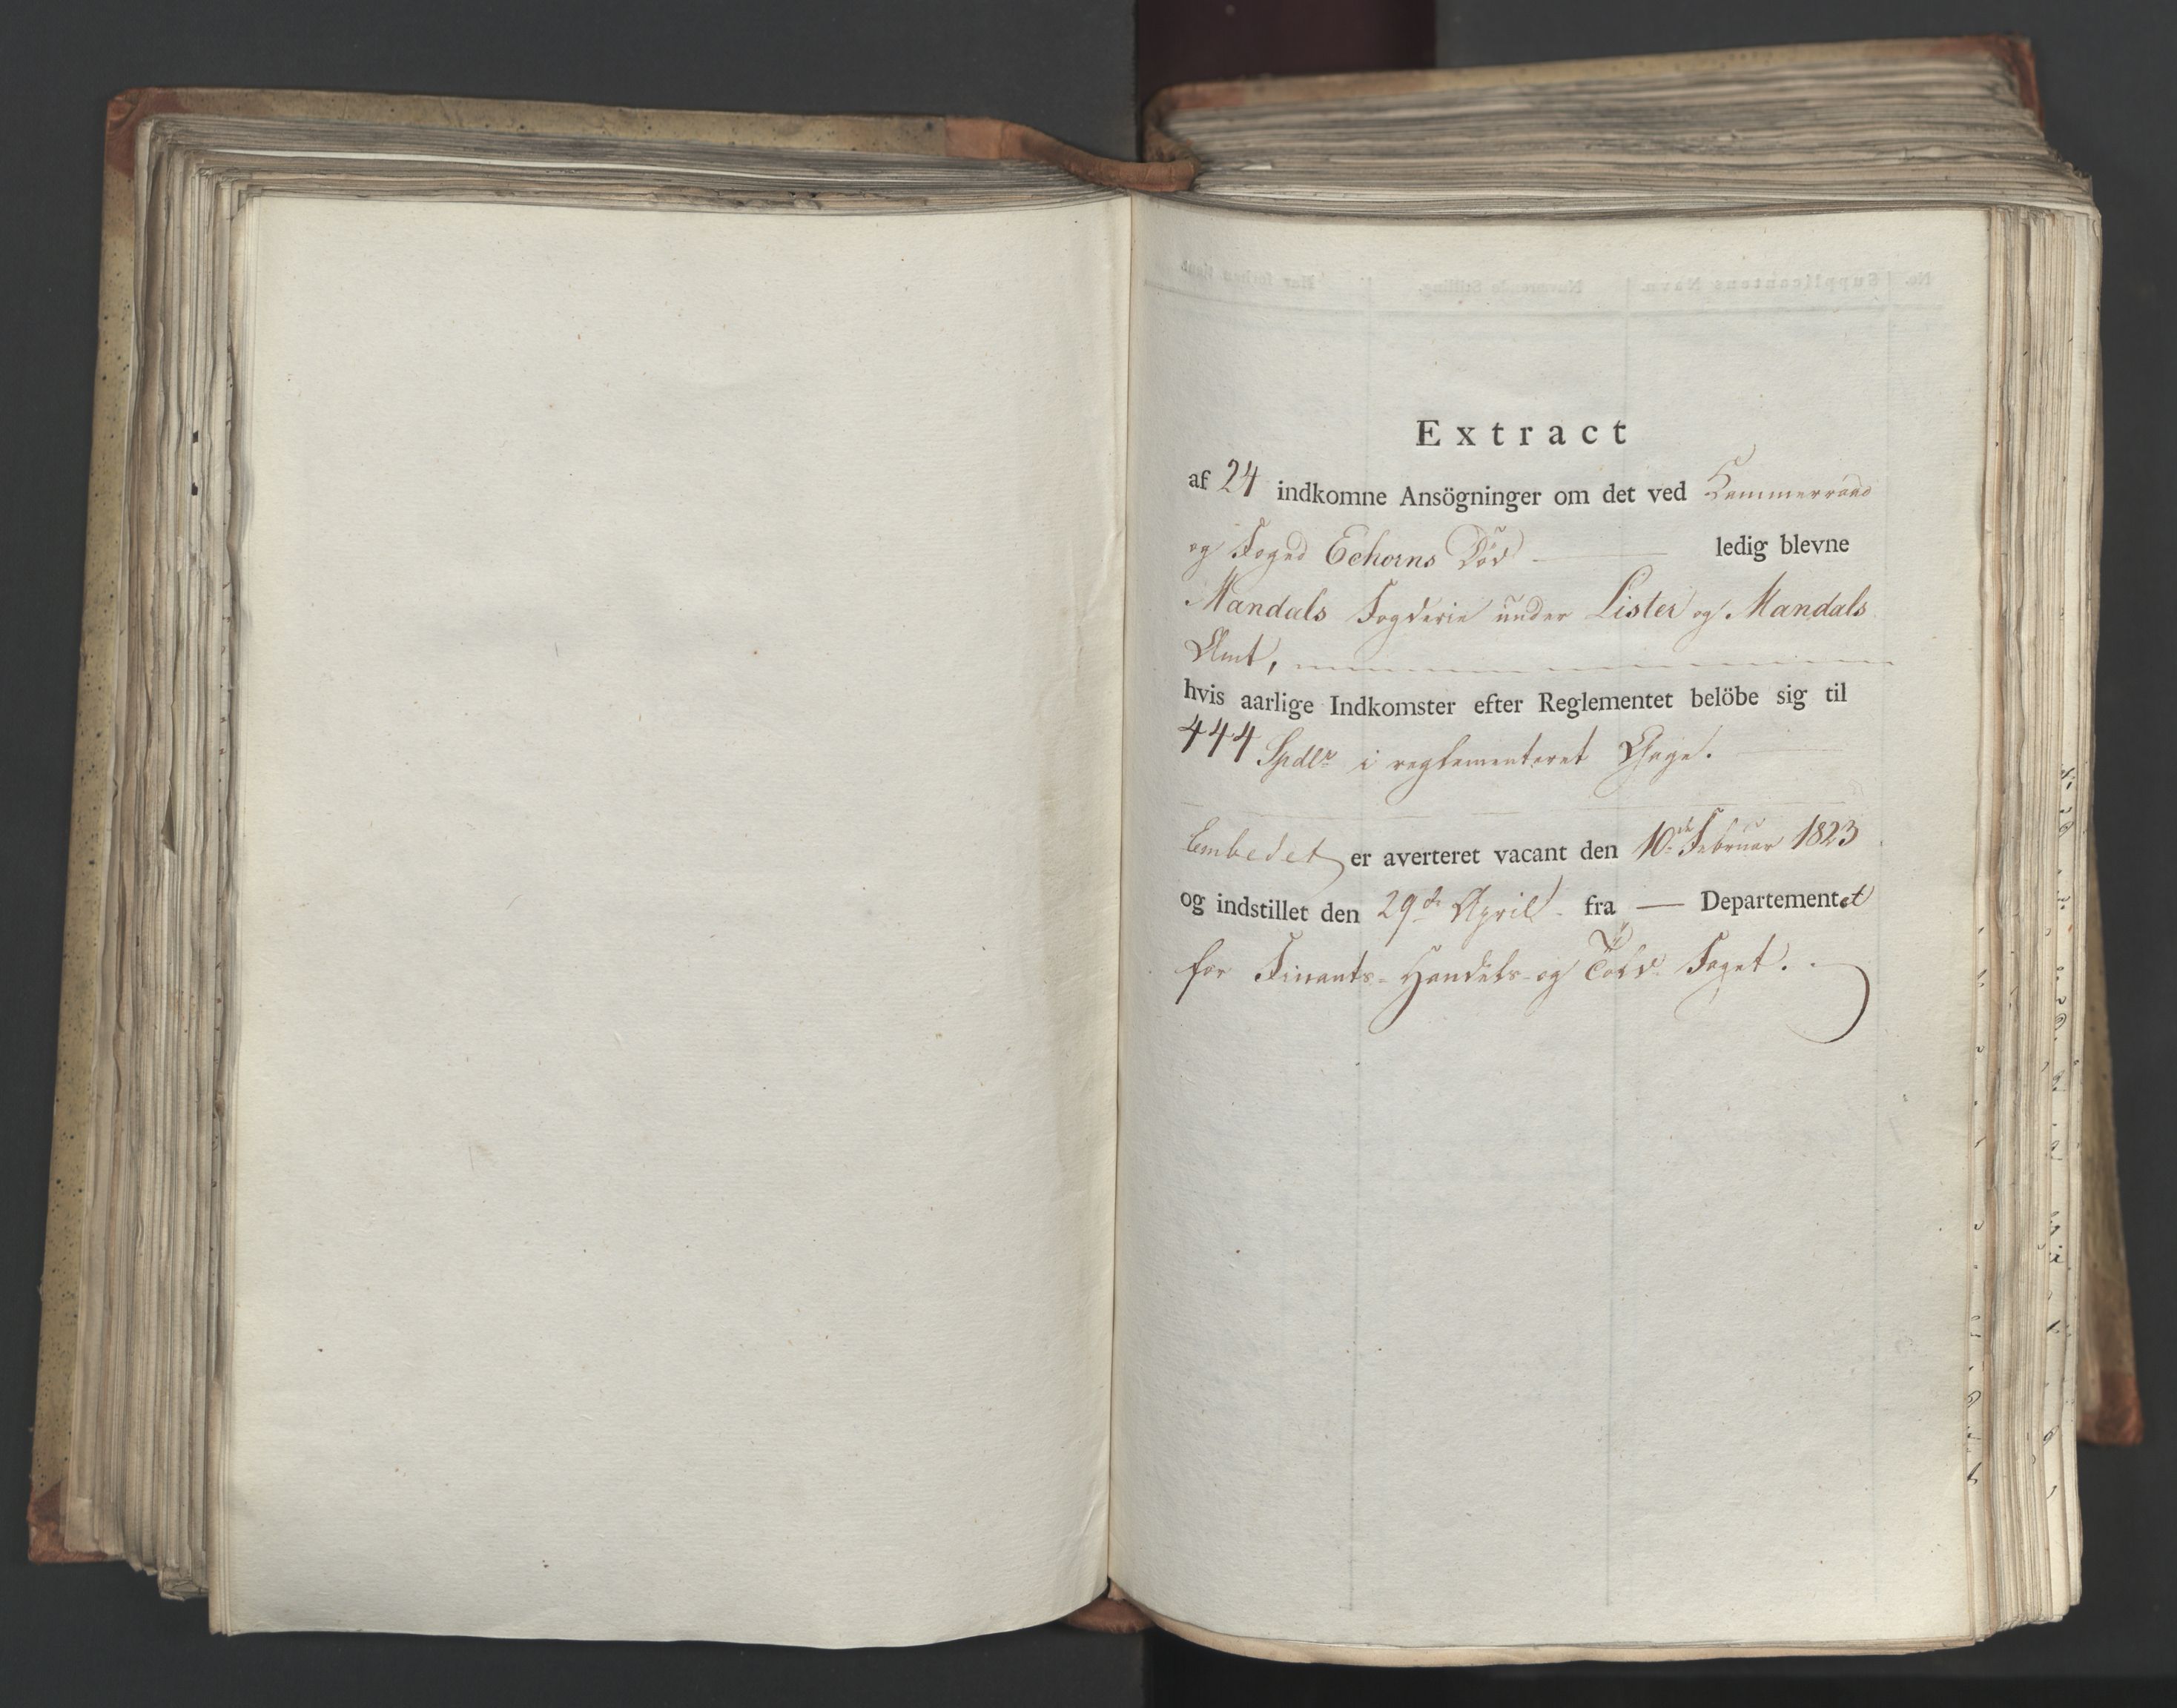 Extract
af 24 indkomne Ansögninger om det ved Kammerraad
og Foged Echorns Död — ledig blevne
Mandals Fogderie under Lister og Mandals
Amt,
hvis aarlige Indkomster efter Reglementet belöbe sig til
444 Spdlr i reglementeret Gage.
Embedet er averteret vacant den 10de Februar 1823
og indstillet den 29de April fra — Departementet
for Finants- Handels- og Told- Faget.